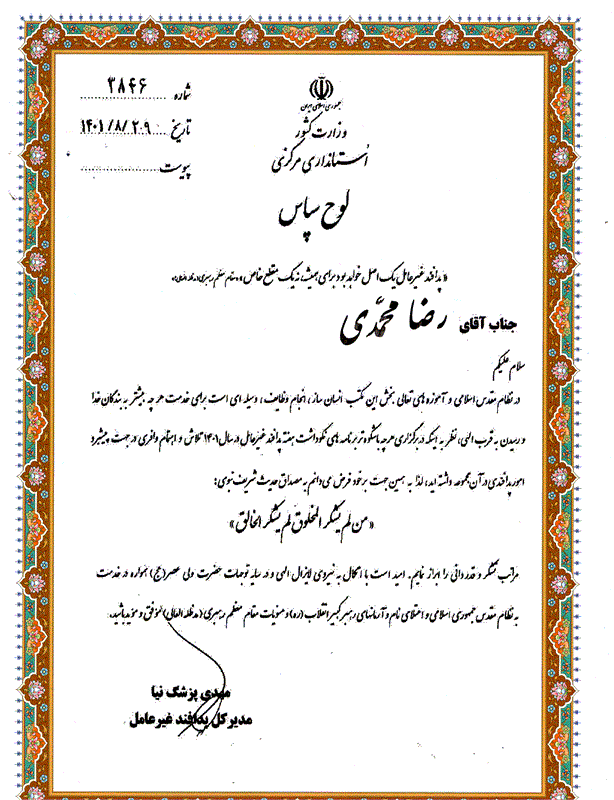 جمهوری اسلامی ایران
وزارت کشور
استانداری مرکزی
شماره ۳۸۴۶
تاریخ ۱۴۰۱/۸/۲۰۹
پیوست
لوح سپاس
«پدافند غیرعامل یک اصل خواهد بود برای همیشه، نه یک مقطع خاص» «مقام معظم رهبری(مدظله العالی)»
جناب آقای رضا محمدی
سلام علیکم
در نظام مقدس اسلامی و آموزه های تعالی بخش این مکتب انسان ساز، انجام وظایف، وسیله ای است برای خدمت هر چه بیشتر به بندگان خدا
و رسیدن به قرب الهی، نظر به اینکه در برگزاری هرچه باشکوه تر برنامه های نکوداشت هفته پدافند غیرعامل در سال ۱۴۰۱ تلاش و اهتمام وافری در جهت پیشبرد
امور پدافندی در آن مجموعه داشته اید، لذا به همین جهت بر خود فرض می دانم به مصداق حدیث شریف نبوی:
«من لم یشکر المخلوق لم یشکر الخالق»
مراتب تشکر و قدردانی را ابراز نمایم. امید است با اتکال به نیروی لایزال الهی و در سایه توجهات حضرت ولی عصر(عج) همواره در خدمت
به نظام مقدس جمهوری اسلامی و اعتلای نام و آرمانهای رهبر کبیر انقلاب (ره) و منویات مقام معظم رهبری (مدظله العالی) موفق و موید باشید.
مهدی پزشک نیا
مدیر کل پدافند غیر عامل